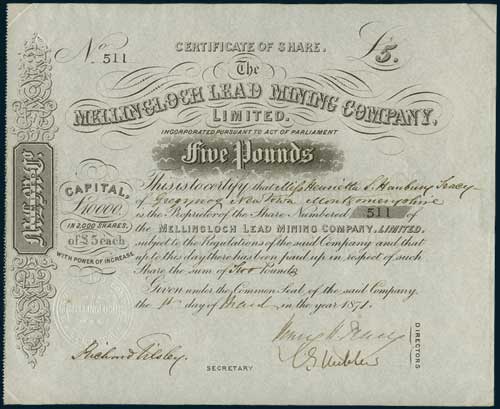 No. 511
CERTIFICATE OF SHARE.
£5.
The
MELLINGLOCH LEAD MINING COMPANY,
LIMITED.
INCORPORATED PURSUANT TO ACT OF PARLIAMENT
Five Pounds.
CAPITAL,
£10000,
IN 2,000 SHARES,
of £5 each
WITH POWER OF INCREASE
This is to certify that Miss Henrietta S. Hanbury Tracy
of Newtown Montgomeryshire
is the Proprietor of the Share Numbered 511 of
the MELLINGLOCH LEAD MINING COMPANY, LIMITED.
subject to the Regulations of the said Company and that
up to this day there has been paid up in respect of such
Share the sum of Two Pounds
Given under the Common Seal of the said Company,
the 1st day of March in the year 1871.
Richard Tilsley
SECRETARY
DIRECTORS